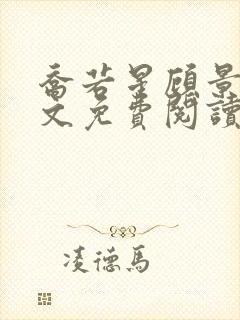 喬若星顧景
文免費閱讀
凌德馬